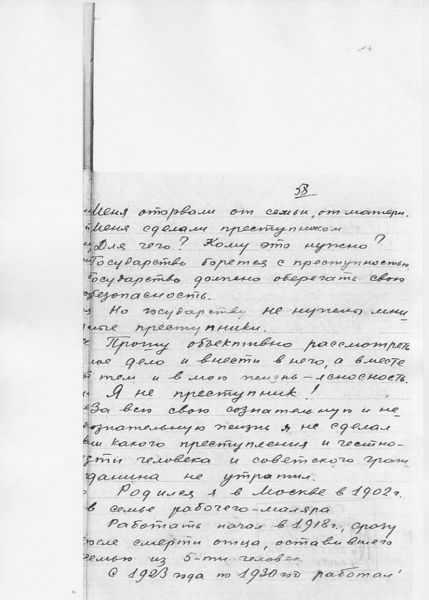 58
Меня оторвали от семьи, от матери.
Меня сделали преступником
Для чего? Кому это нужно?
Государство борется с преступностью.
Государство должно оберегать свою
безопасность.
Но государству не нужены мни-
мые преступники.
Прошу объективно рассмотреть
мое дело и внести в него, а вместе
с тем и в мою жизнь – ясносность.
Я не преступник!
За всю свою сознательную и не-
ознательную жизнь я не сделал
какого преступления и честно-
сти человека и советского граж-
данина не утратил.
Родился я в Москве в 1902 г.
в семье рабочего-маляра
Работать начал в 1918 г., сразу
после смерти отца, оставившего
семью из 5-ти человек
С 1923 года по 1930 год работал